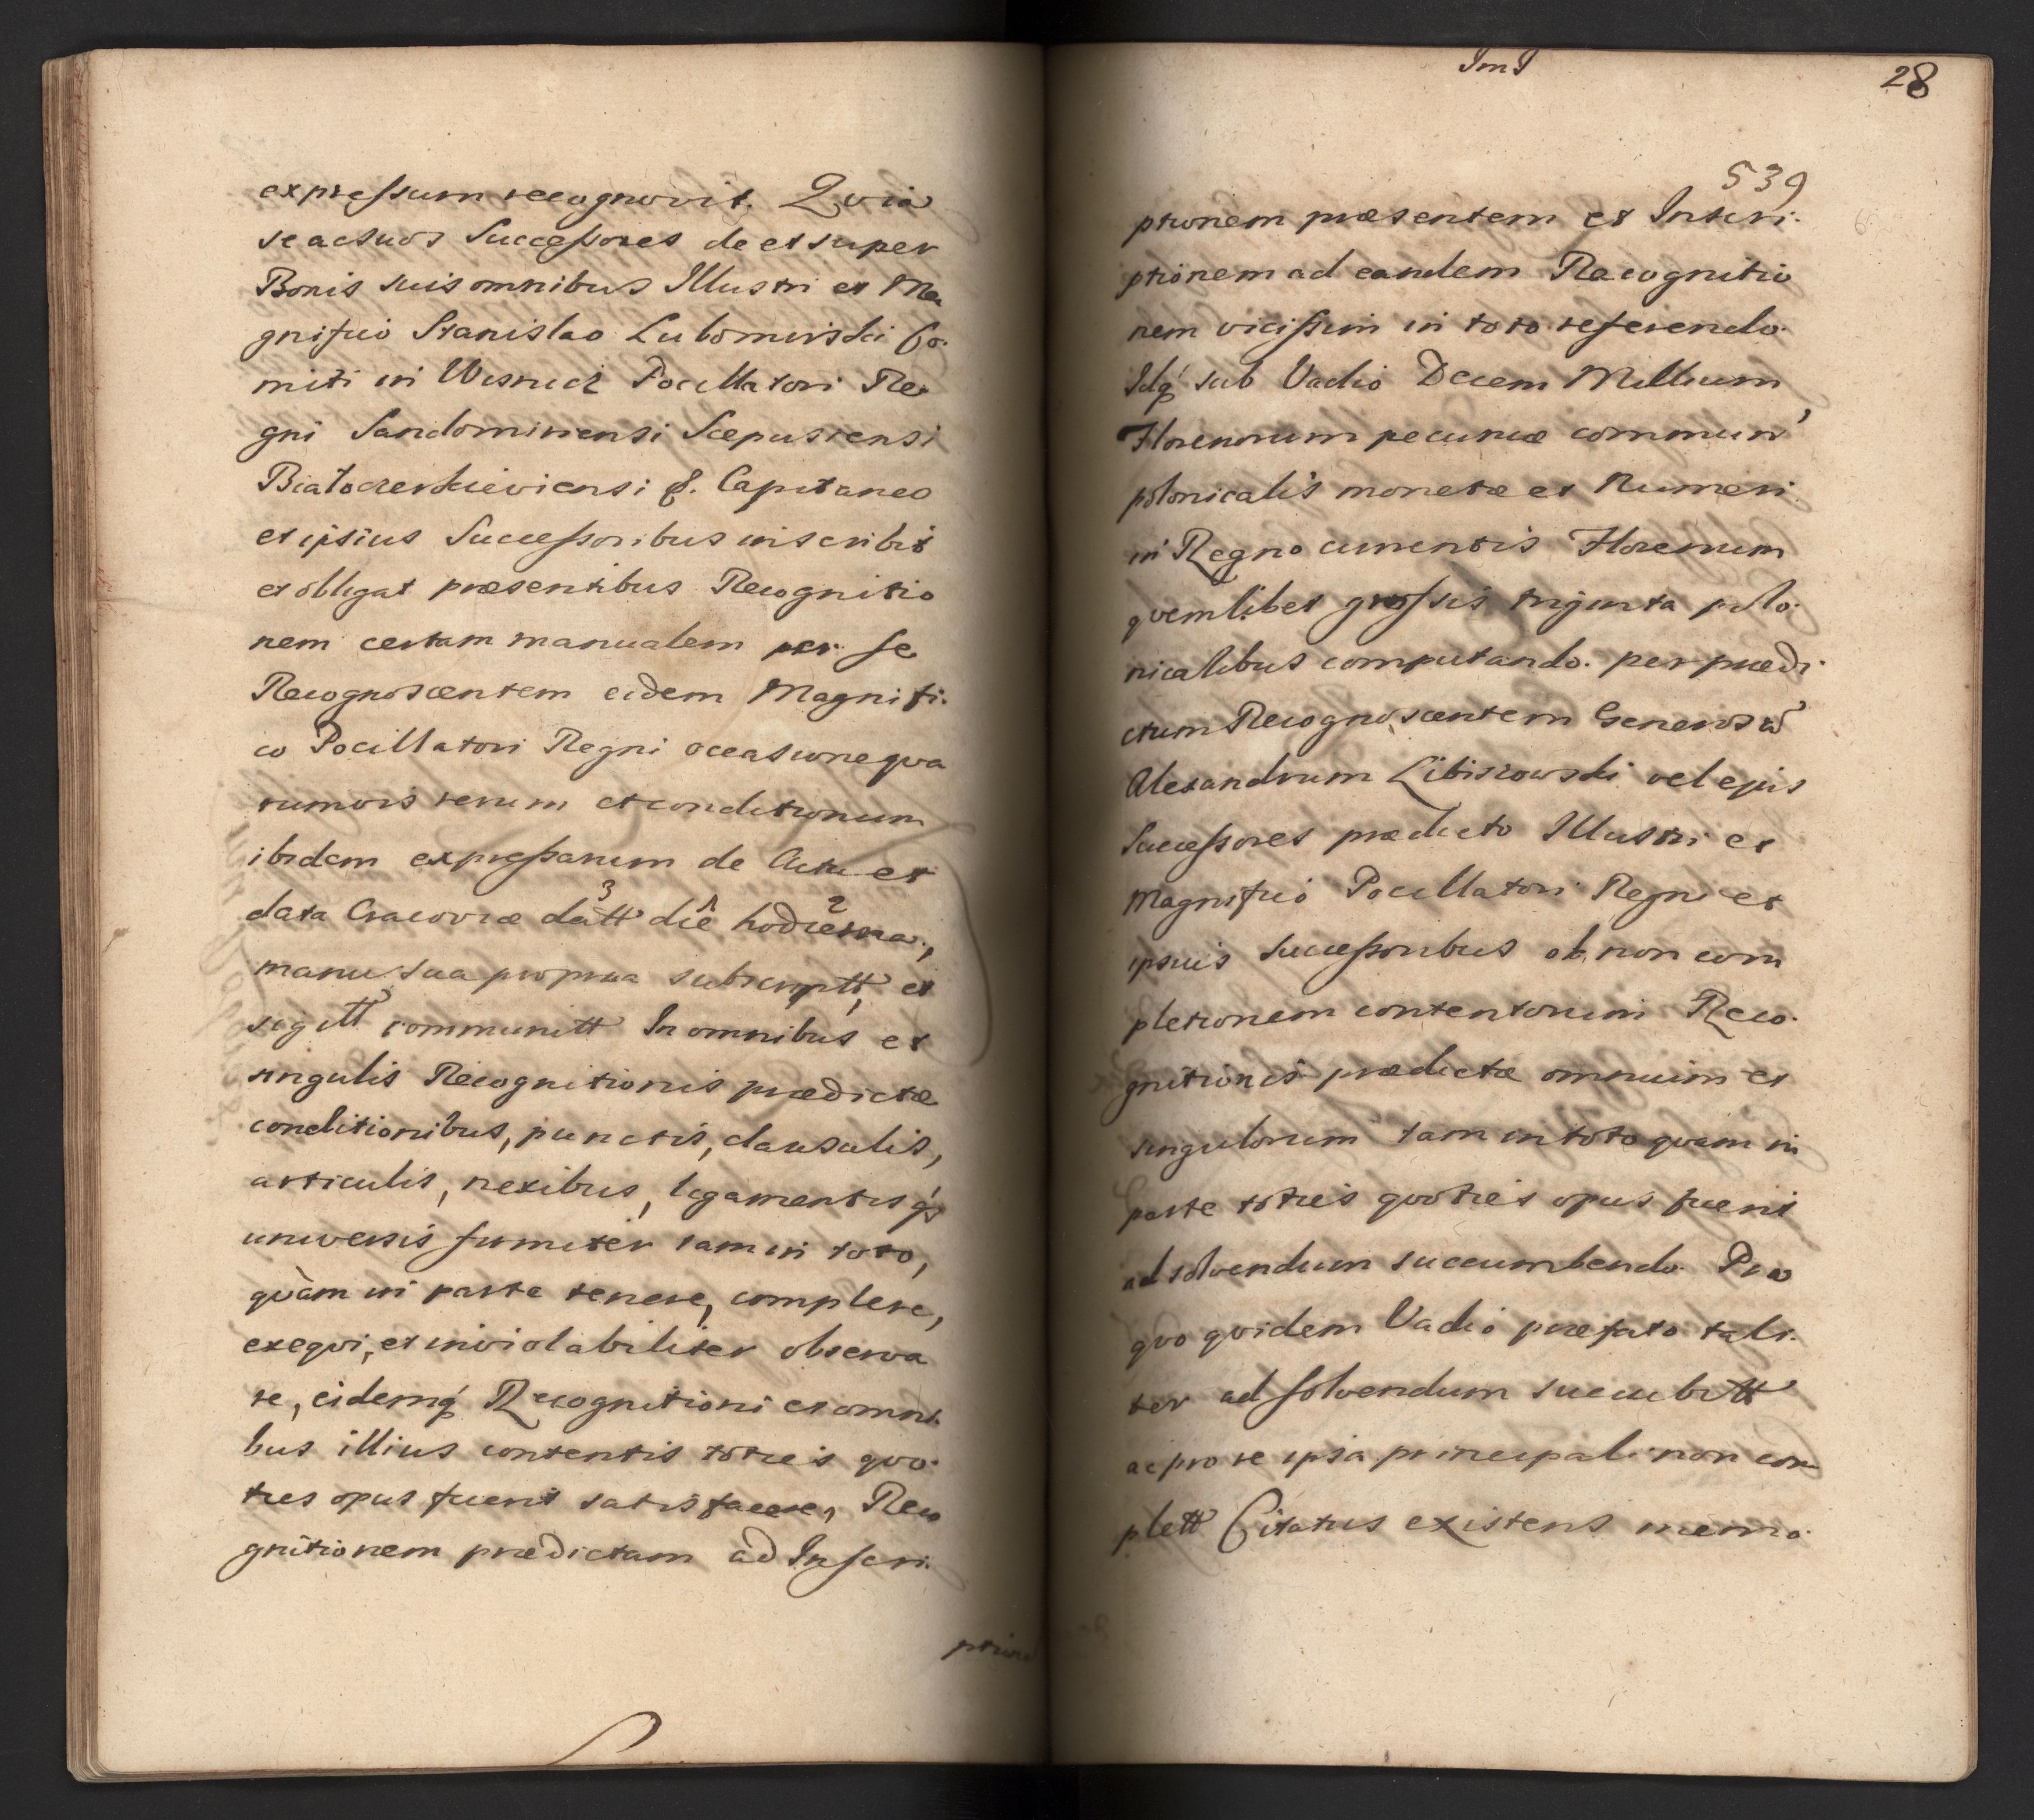 expressum recognovit. Qvia
se ac suos Successores de et super
Bonis suis omnibus Illustri et Ma
gnifico Stanislao Lubomirski Co-
miti in Wisnicz Pocillatori Re
gni Sandomiriensi Scepusiensi
Białocerkieviensi &. Capitaneo
et ipsius Successoribus inscribit
et obligat præsentibus Recognitio
nem certam manualem per se
Recognoscentem eidem Magnifi-
co Pocillatori Regni occasione qva
rumvis rerum et conditionum
ibidem expressarum de Actu et
data Cracoviæ datt die hodierna,
3 1 2
manu sua propria subscriptt, et
sigitt communitt In omnibus et
singulis Recognitionis prædictæ
conditionibus, punctis, clausulis,
articulis, nexibus, ligamentisq́;
universis firmiter tam in toto,
qvàm in parte tenere, complere,
exeqvi, et inviolabiliter observa
re, eidemq́ Recognitioni et omni-
bus illius contentis toties qvo-
ties opus fuerit satisfacere, Reco
gnitionem prædictam ad Inscri-
ptione
ImJ
28
539
ptionem præsentem et Inscri-
ptionem ad eandem Recognitio
nem vicissim in toto referendo.
Idq́ sub Vadio Decem Millium
Florenorum pecuniæ communis
polonicalis monetæ et Numeri
in Regno currentis Florenum
qvemlibet grossis triginta polo-
nicalibus computando. per prædi-
ctum Recognoscentem Generosū
Alexandrum Libiszowski vel ejus
Successores prædicto Illustri et
Magnifico Pocillatori Regni et
ipsius Successoribus ob non com
pletionem contentorum Reco-
gnitionis prædictæ omnium et
singulorum tam in toto qvam in
parte toties qvoties opus fuerit
ad solvendum succumbendo. Pro
qvo qvidem Vadio præfato tali-
ter ad solvendum succubitt
ac pro re ipsa principali non com
plett Citatus existens memo-